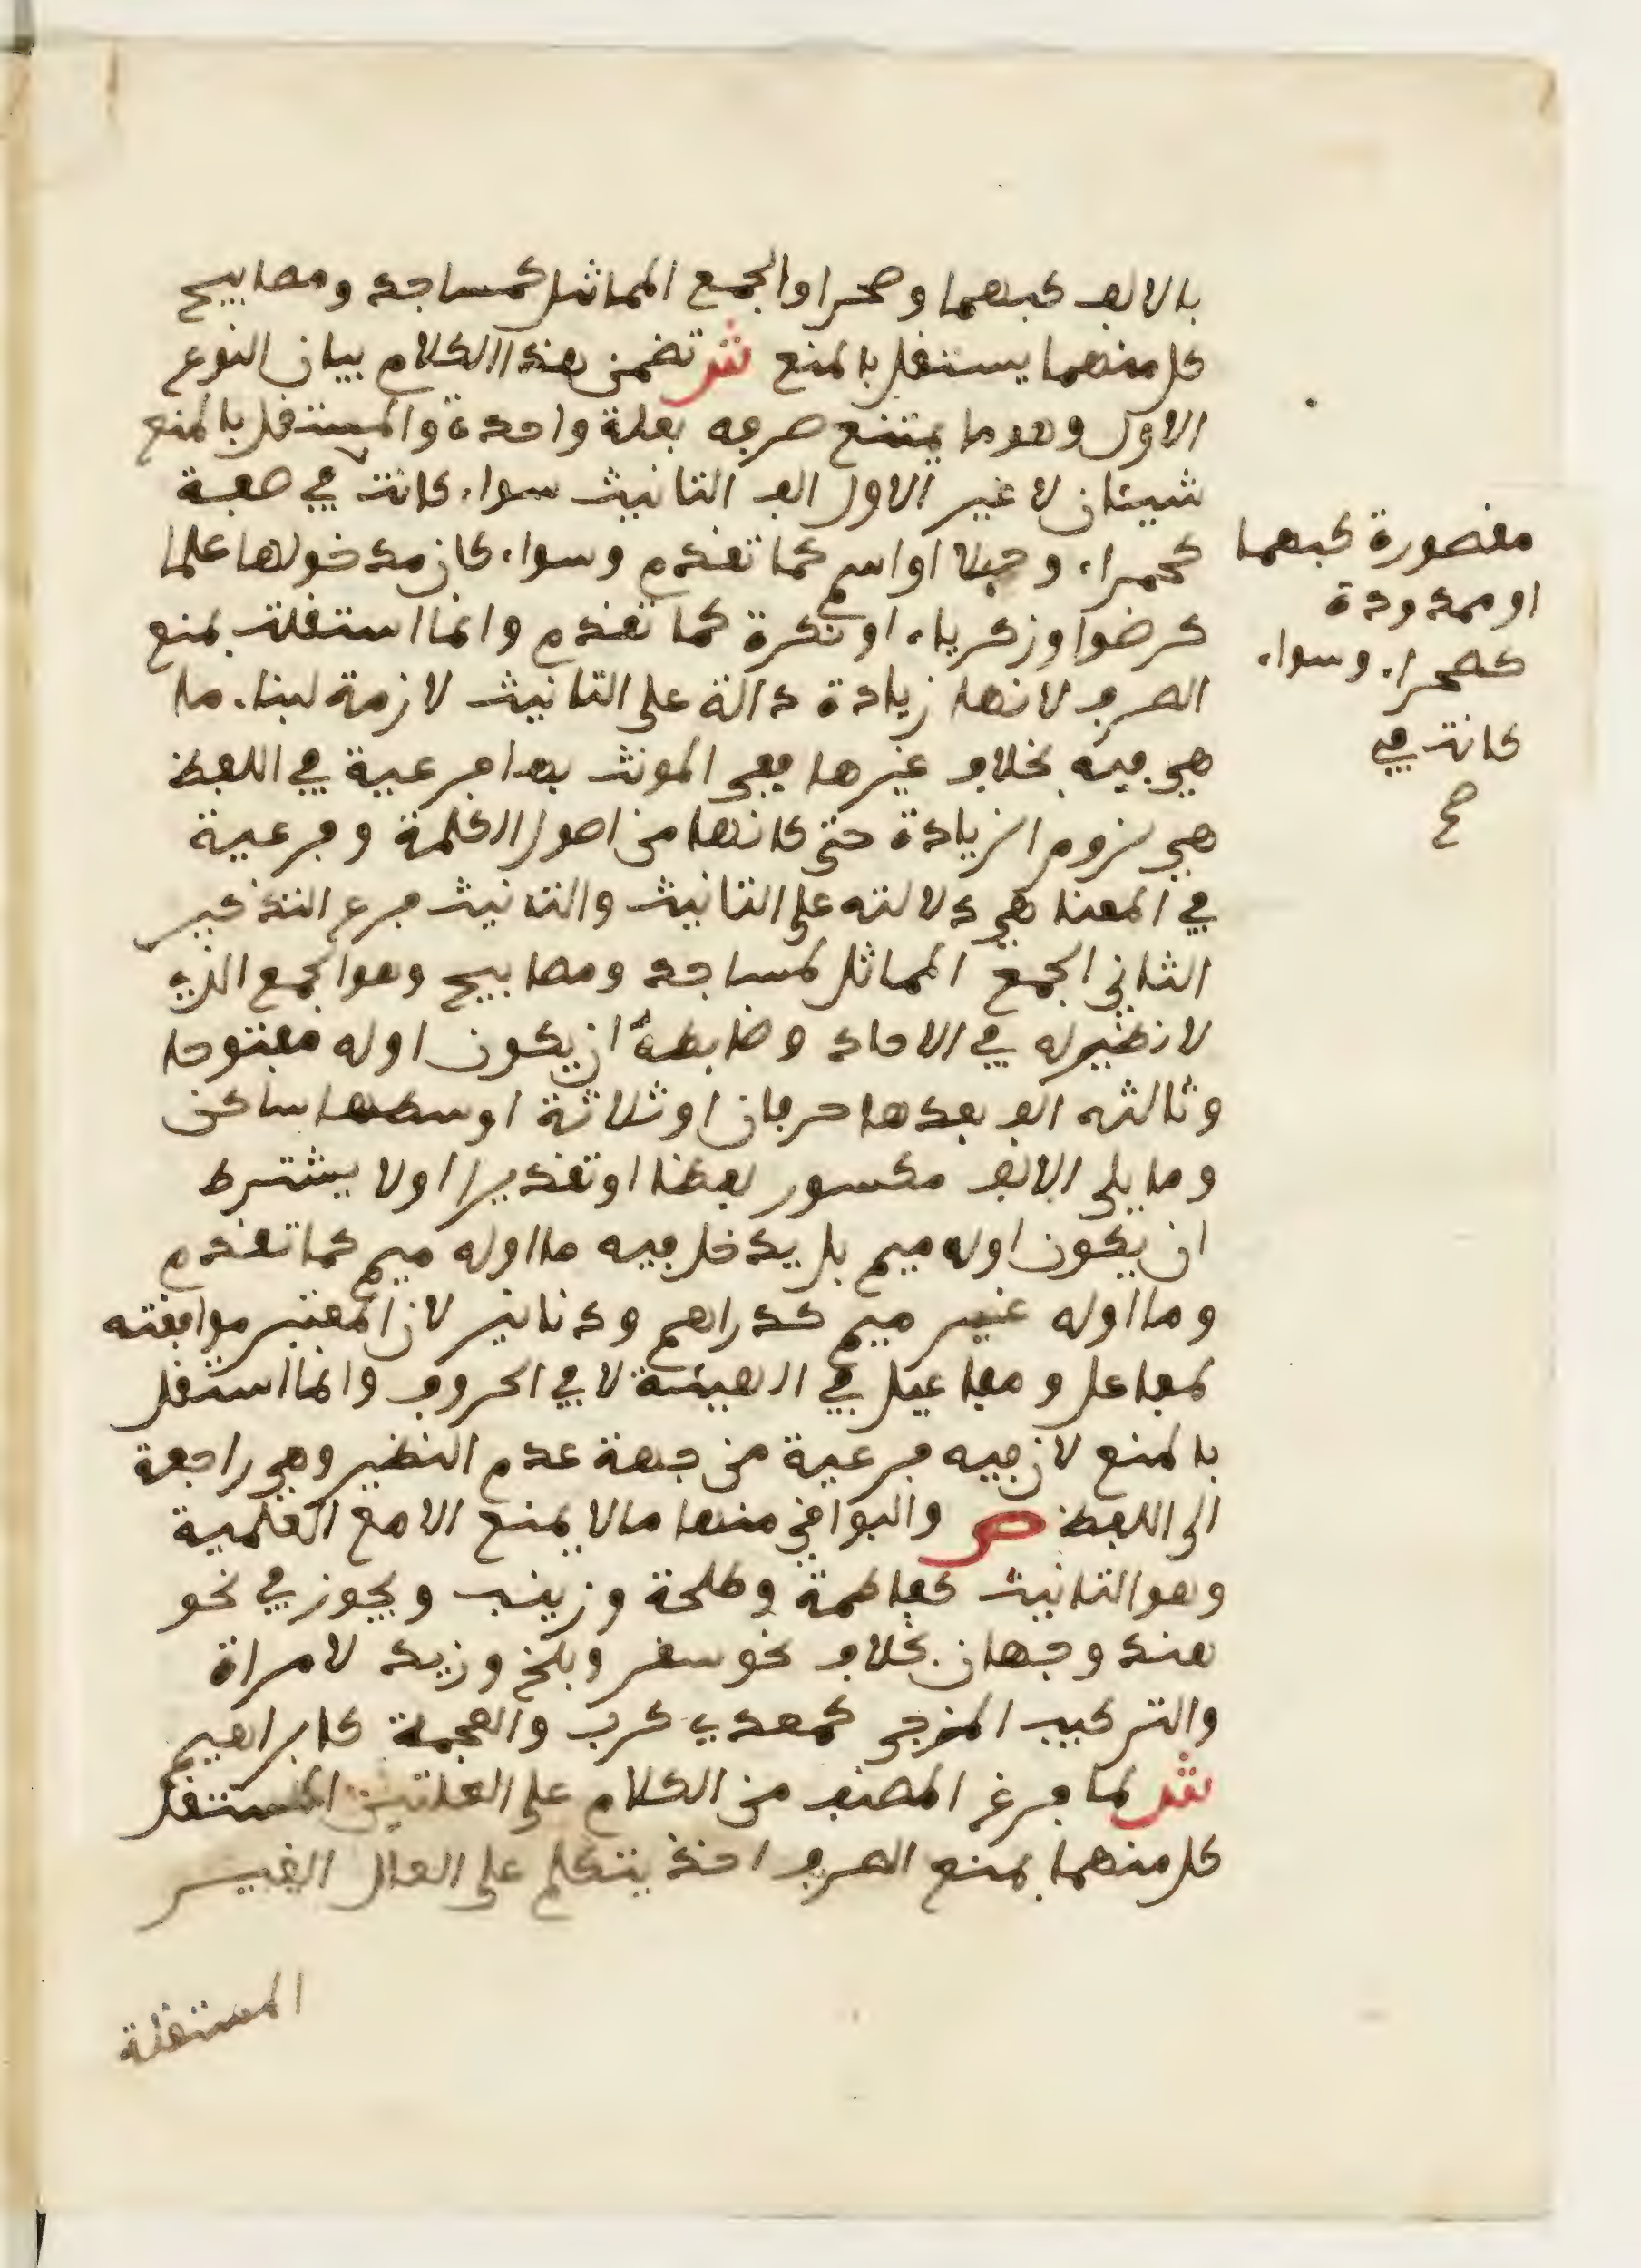 بالالف كبهما وصحرا والجمع المماثل كمساجد ومصابيح
كل منهما يستقل بالمنع ش تضمن هذا الكلام بيان النوع
الاول وهو ما يمتنع صرفه بعلة واحدة والمستقل بالمنع
شيئان لا غير الاول الف التانيث سواء كانت في صفة
كحمراء وحبلا او اسم كما تقدم وسواء كان مدخولها علما
كرضوا وزكرياء او نكرة كما تقدم وانما استقلت بمنع
الصرف لانها زيادة دالة على التانيث لازمة لبناء ما
هي فيه بخلاف غيرها ففي المونث بها فرعية في اللفظ
هي لزوم الزيادة حتى كانها من اصول الكلمة وفرعية
في المعنا هي دلالته على التانيث والتانيث فرع التذكير
الثاني الجمع المماثل لمساجد ومصابيح وهو الجمع الذي
لا نظير له في الاحاد وضابطه ان يكون اوله مفتوحا
وثالثه الف بعدها حرفان او ثلاثة اوسطها ساكن
وما يلي الالف مكسور لفظا او تقديرا اولا يشترط
ان يكون اوله ميم بل يدخل فيه ما اوله ميم كما تقدم
وما اوله غير ميم كدراهم ودنانير لان المعتبر موافقته
لمفاعل ومفاعيل في الهيئة لا في الحروف وانما استقل
بالمنع لان فيه فرعية من جهة عدم النظير وهي راجعة
الى اللفظ ص والبواقي منها ما لا يمنع الا مع العلمية
وهو التانيث كفاطمة وطلحة وزينب ويجوز في نحو
هند وجهان بخلاف نحو سقر وبلخ وزيد لامراة
والتركيب المزجي كمعدي كرب والعجمة كابراهيم
ش لما فرغ المصنف من الكلام على العلتين المستقل
كل منهما بمنع الصرف اخذ يتكلم على العلل الغير
المستقلة
مقصورة كبهما
او ممدودة
كصحراء وسواء
كانت في
صح